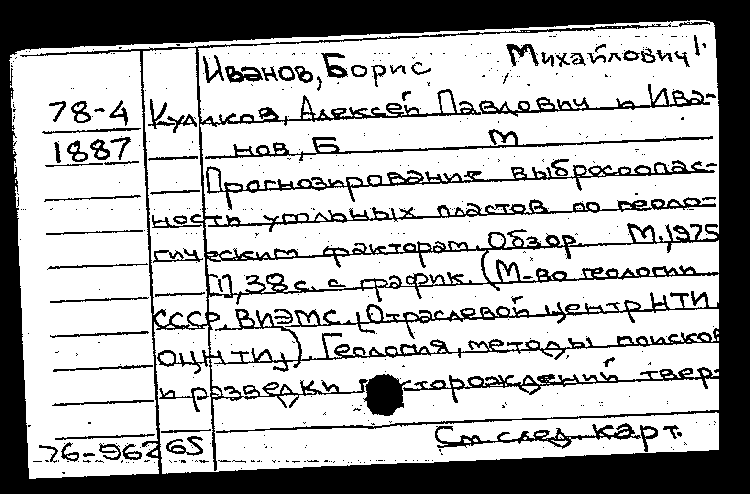 Иванов, Борис Михайлович 1.
78-4 Куликов, Алексей Павлович и Ива-
1887 нов, Б М
Прогнозирование выбросоопас-
ность угольных пластов по геоло-
гическим факторам. Обзор. М., 1975
П, 38 с. с график. (М-во геологии
СССР. ВИЭМС. [Отраслевой центр НТИ.
ОЦНТИ]). Геология, методы поисков
и разведки месторождений твер-
76-96265 См след. карт.